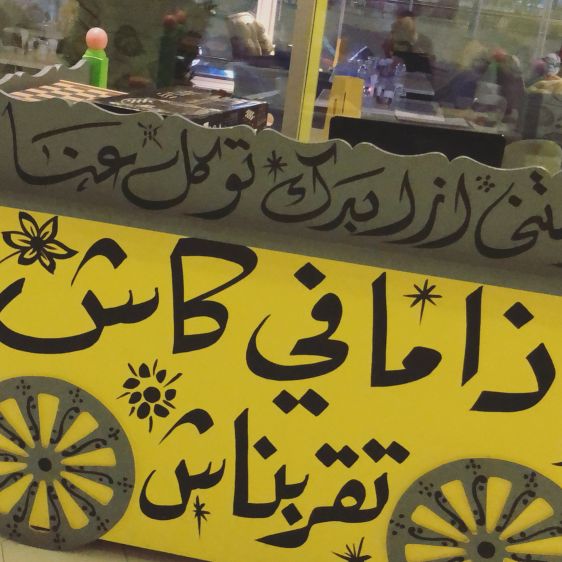 ازا بدك توكل عنا
ذا ما في كاش
تقربناش